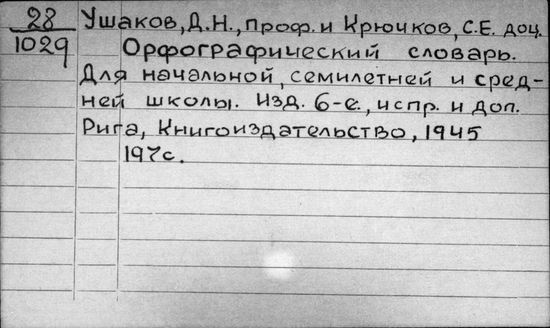 28
1029
Ушаков, Д.Н., проф. и Крючков, С.Е. доц.
Орфографический словарь.
Для начальной, семилетней и сред-
ней школы. Изд. 6-е., испр. и доп.
Рига, Книгоиздательство, 1945
197с.